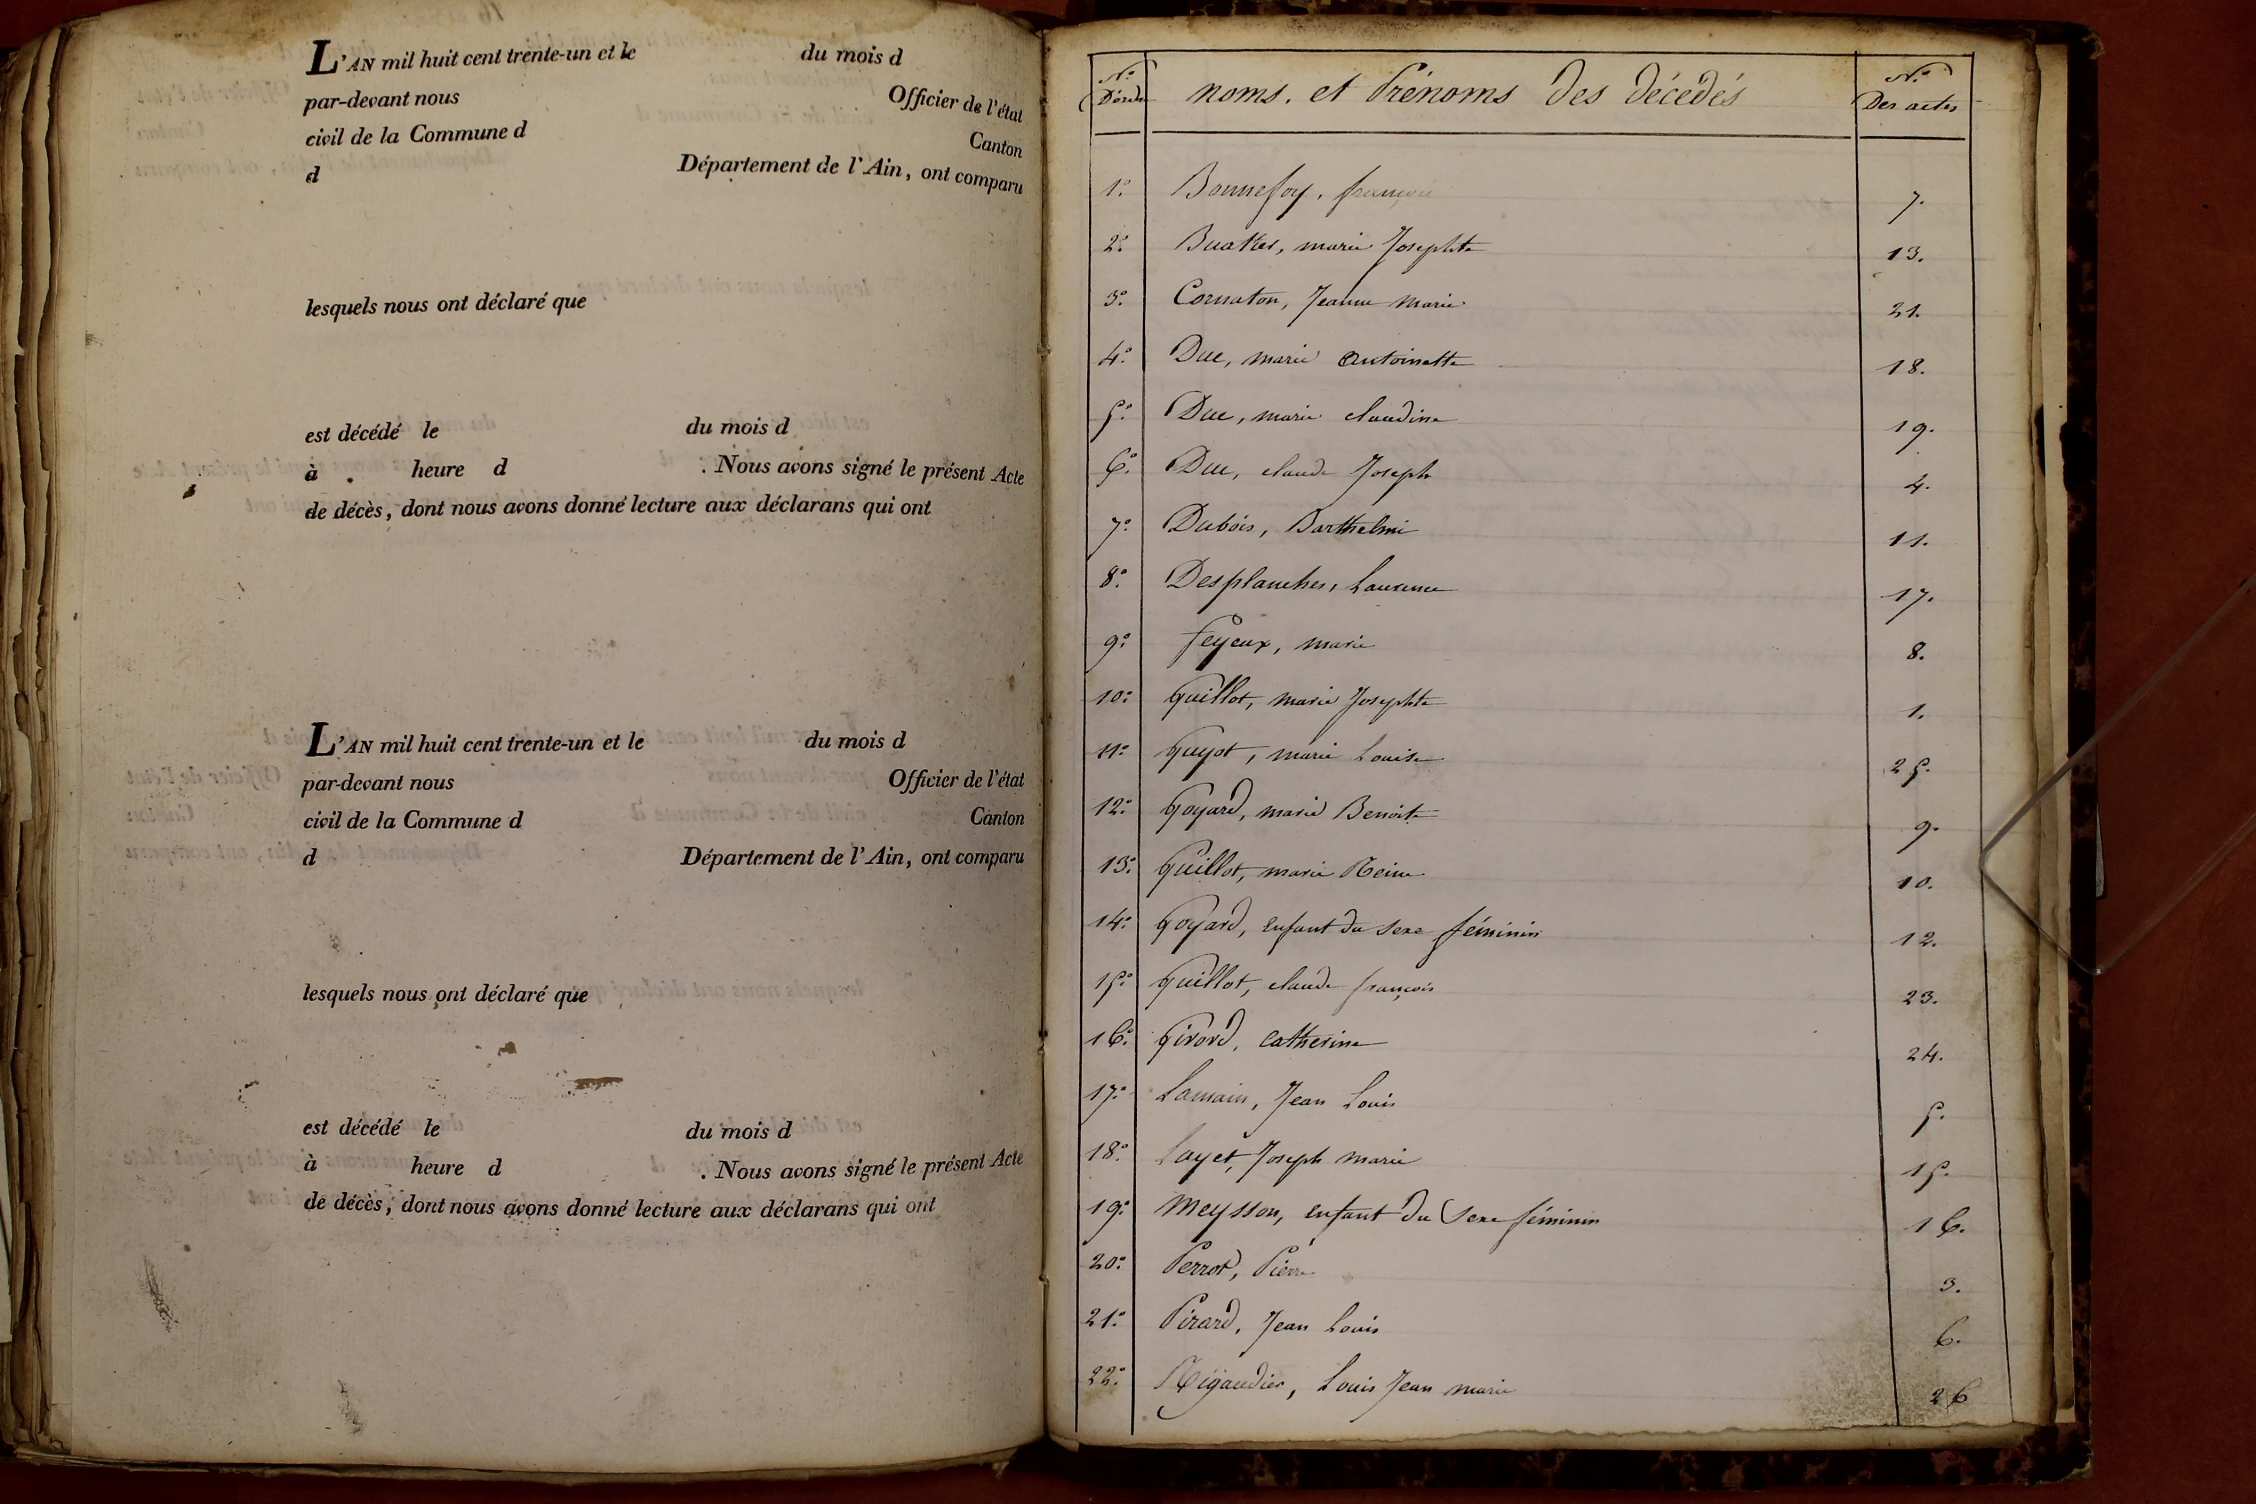 L'AN mil huit cent trente-un et le du mois d
par-devant nous Officier de l'état
civil de la Commune d Canton
d Département de l'Ain, ont comparu
lesquels nous ont déclaré que
est décédé le du mois d
à heure d . Nous avons signé le présent Acte
de décès, dont nous avons donné lecture aux déclarans qui ont
L'AN mil huit cent trente-un et le du mois d
par-devant nous Officier de l'état
civil de la Commune d Canton
d Département de l'Ain, ont comparu
lesquels nous ont déclaré que
est décédé le du mois d
à heure d . Nous avons signé le présent Acte
de décès, dont nous avons donné lecture aux déclarans qui ont
N.º D'ordre noms. et Prénoms des décédés N.º Des actes
1º Bonnefoy, françois 7.
2º marie Josephte 13.
3º Cornaton, Jeanne marie 21.
4º Duc, marie antoinette 18.
5º Duc, marie claudine 19.
6º Duc, claude Joseph 4.
7º Dubois, Barthelmi 11.
8º Desplanches, Laurence 17.
9º feyeux, marie 8.
10º Guillot, marie Josephte 1.
11º Guyot, marie Louise 25.
12º Goyard, marie Benoite 9.
13º Guillot, marie Reine 10.
14º Goyard, enfant du sexe féminin 12.
15º Guillot, claude françois 23.
16º Girord, catherine 24.
17º Lamain, Jean Louis 5.
18º Layet, Joseph marie 15.
19º Meysson, enfant du Sexe féminin 16.
20º Perrot, Pierre 3.
21º Pirard, Jean Louis 6.
22º Rigaudier, Louis Jean marie 26